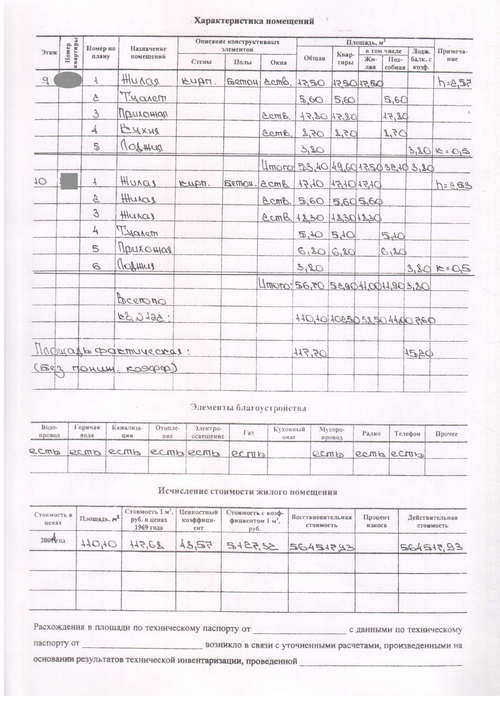 Характеристика помещений
Этаж Номер квартиры Номер по плану Назначение помещений Описание конструктивных элементов Площадь, м² Примеча-ние
Стены Полы Окна Общая Квар-тиры в том числе Лодж. балк. с коэф.
Жи-лая Под-собная
9 1 Жилая кирп. бетон. еств. 17,50 17,50 17,50
2 Туалет 5,60 5,60 5,60
3 Прихожая еств.
4 Кухня еств. 8,70 8,70 8,70
5 Лоджия 3,80 3,80 к=0,5
Итого: 53,40 49,60 17,50 3,80
10 1 Жилая кирп. бетон. еств. 17,10 17,10 17,10
2 Жилая еств. 5,60 5,60 5,60
3 Жилая еств. 18,30 18,30 18,30
4 Туалет 5,10 5,10 5,10
5 Прихожая 6,80 6,80 6,80
6 Лоджия 3,80 3,80 к=0,5
Итого: 56,70 52,90 41,00 11,90 3,80
Всего по
110,10 7,60
Площадь фактическая: 117,70 15,20
(без пониж. коэфф)
Элементы благоустройства
Водо-провод Горячая вода Канализа-ция Отопле-ние Электро-освещение Газ Кухонный очаг Мусоро-провод Радио Телефон Прочее
есть есть есть есть есть есть есть есть есть
Исчисление стоимости жилого помещения
Стоимость в ценах Площадь, м² Стоимость 1 м², руб. в ценах 1969 года Ценностный коэффици-ент Стоимость с коэф-фициентом 1 м², руб. Восстановительная стоимость Процент износа Действительная стоимость
110,10 117,68 43,57 5127,32 564517,93 564517,93
Расхождения в площади по техническому паспорту от с данными по техническому
паспорту от возникло в связи с уточненными расчетами, произведенными на
основании результатов технической инвентаризации, проведенной